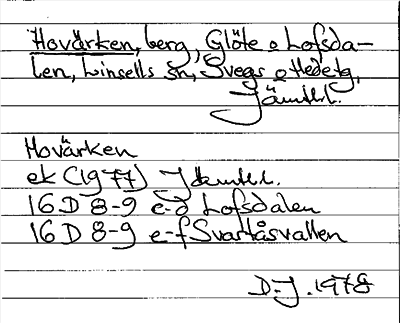 Hovärken, berg, Glöte o Lofsda-
len, Linsells sn, Svegs o Hede tg,
Jämtl.l.
Hovärken
ek (1977) Jämtl.l.
16D 8-9 c-d Lofsdalen
16D 8-9 e-f Svartåsvallen
D-J. 1978